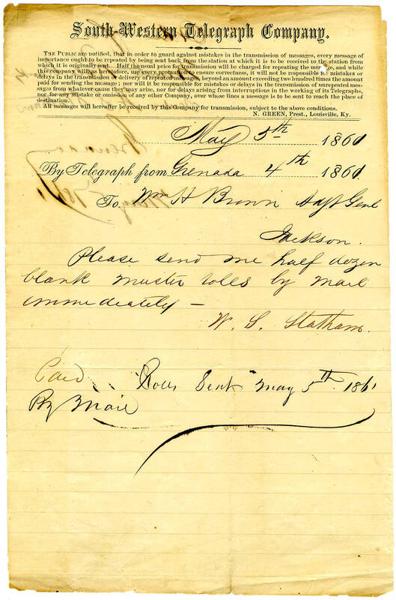 South-Western Telegraph Company.
The Public are notified, that in order to guard against mistakes in the transmission of messages, every message of
importance ought to be repeated by being sent back from the station at which it is to be received to the station from
which it is originally sent. Half the usual price for transmission will be charged for repeating the message, and while
this company will as heretofore, use every precaution to ensure correctness, it will not be responsible for mistakes or
delays in the transmission or delivery of repeated messages, beyond an amount exceeding two hundred times the amount
paid for sending the message; nor will it be responsible for mistakes or delays in the transmission of unrepeated messages
from whatever cause they may arise, nor for delays arising from interruptions in the working of its Telegraphs,
nor for any mistake or omission of any other Company, over whose lines a message is to be sent to reach the place of
destination.
All messages will hereafter be received by this Company for transmission, subject to the above conditions.
N. GREEN, Prest, Louisville, Ky.
May 5th 1861
By Telegraph from Grenada 4th 1861
To W H Brown Adjt Genl
Jackson.
Please send me half dozen
blank muster rolls by mail
immediately —
W. S. Statham.
Rolls Sent May 5th 1861
By Mail